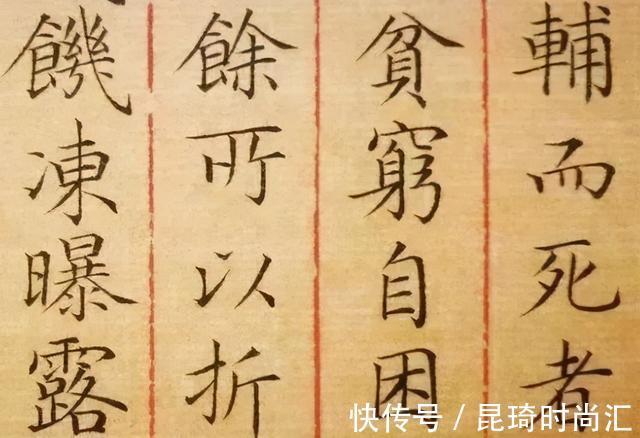 輔而死者
貧窮自困
餘所以折
饑凍曝露
快传号 / 昆琦时尚汇